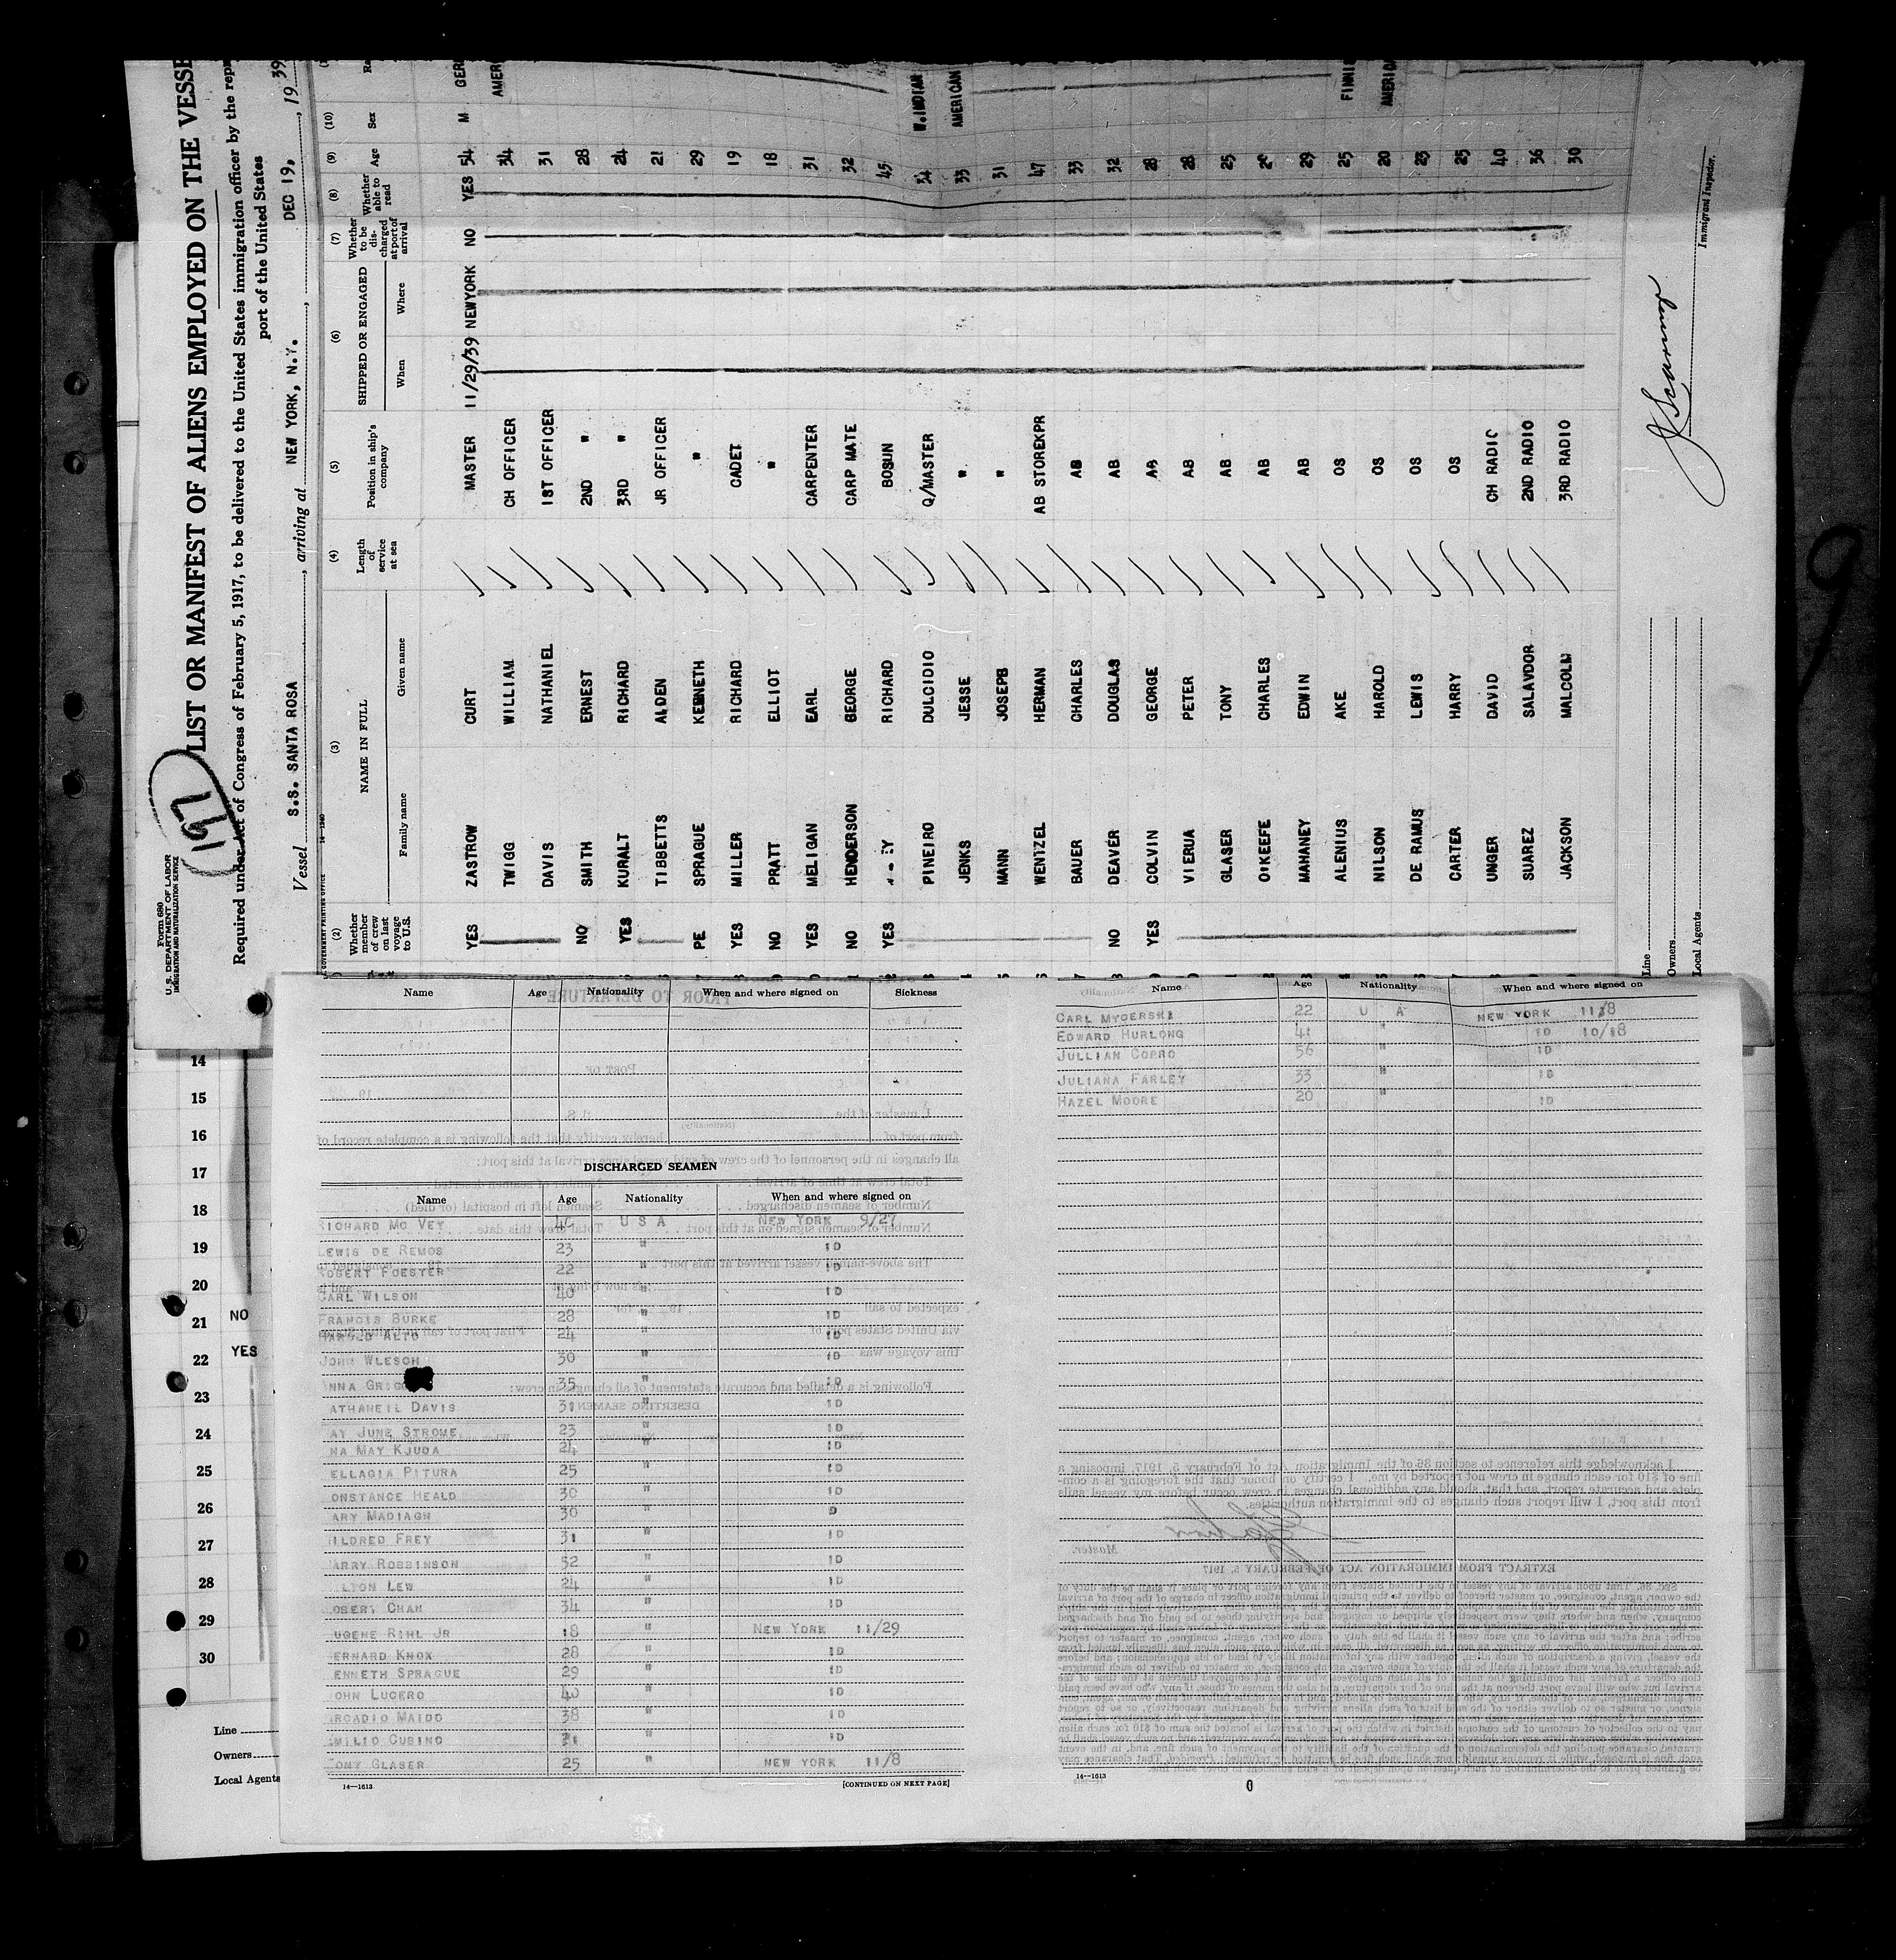 Form 680
U.S. DEPARTMENT OF LABOR
IMMIGRATION AND NATURALIZATION SERVICE
197
LIST OR MANIFEST OF ALIENS EMPLOYED ON THE VESSE
Required under Act of Congress of February 5, 1917, to be delivered to the United States immigration officer by the repr
port of the United States
Vessel S.S. SANTA ROSA, arriving at NEW YORK, N.Y., DEC 19, 19 39
(2) (3) (4) (5) (6) (7) (8) (9) (10)
Whether member of crew on last voyage to U.S. NAME IN FULL Length of service at sea Position in ship's company SHIPPED OR ENGAGED Whether to be discharged at port of arrival Whether able to read Age Sex Ra
Family name Given name When Where
YES ZASTROW CURT MASTER 11/29/39 NEWYORK NO YES 54 M GER
TWIGG WILLIAM CH OFFICER 34 AMER
DAVIS NATHANIEL 1ST OFFICER 31
NO SMITH ERNEST 2ND " 28
YES KURALT RICHARD 3RD " 24
TIBBETTS ALDEN JR OFFICER 21
PE SPRAGUE KENNETH " 29
YES MILLER RICHARD CADET 19
NO PRATT ELLIOT " 18
YES MELIGAN EARL CARPENTER 31
NO HENDERSON GEORGE CARP MATE 32
YES RICHARD BOSUN 45
PINEIRO DULCIDIO Q/MASTER 34 W.INDIAN
JENKS JESSE " 33 AMERICAN
MANN JOSEPH " 31
WENTZEL HERMAN AB STOREKPR 47
BAUER CHARLES AB 33
NO DEAVER DOUGLAS AB 32
YES COLVIN GEORGE AB 28
VIERUA PETER AB 28
GLASER TONY AB 25
O'KEEFE CHARLES AB
MAHANEY EDWIN AB 29
ALENIUS AKE OS 25 FINNIS
NILSON HAROLD OS 20 AMERICA
DE RAMUS LEWIS OS 23
CARTER HARRY OS 25
UNGER DAVID CH RADIO 40
SUAREZ SALAVDOR 2ND RADIO 36
JACKSON MALCOLM 3RD RADIO 30
Line
Owners
Local Agents
Immigrant Inspector.
9
14
15
16
17
18
19
20
21 NO
22 YES
23
24
25
26
27
28
29
30
Line
Owners
Local Agents
Name Age Nationality When and where signed on Sickness
DISCHARGED SEAMEN
Name Age Nationality When and where signed on
RICHARD MC VEY U S A NEW YORK 9/27
LEWIS DE REMOS 23 " ID
ROBERT FOESTER 22 " ID
CARL WILSON 40 " ID
FRANCIS BURKE 28 " ID
HAROLD ALTO 24 " ID
JOHN WLESCH 30 " ID
ANNA GRIGG 35 " ID
ATHANEIL DAVIS 31 " ID
AY JUNE STROME 23 " ID
NA MAY KJUDA 24 " ID
ELLAGIA PITURA 25 " ID
ONSTANCE HEALD 30 " ID
ARY MADIAGN 30 " D
ILDRED FREY 31 " ID
ARRY ROBBINSON 52 " ID
ILTON LEW 24 " ID
OBERT CHAN 34 " ID
UGENE RIHL JR 18 " NEW YORK 11/29
ERNARD KNOX 28 " ID
ENNETH SPRAGUE 29 " ID
OHN LUCERO 40 " ID
RCADIO MAIDO 38 " ID
MILIO CUBINO " ID
ONY GLASER 25 " NEW YORK 11/8
14—1613 [CONTINUED ON NEXT PAGE]
Name Age Nationality When and where signed on
CARL MYGERSKI 22 U A NEW YORK 11/8
EDWARD HURLONG 41 " ID 10/18
JULLIAN COPRO 56 " ID
JULIANA FARLEY 33 " ID
HAZEL MOORE 20 " ID
14—1613
0